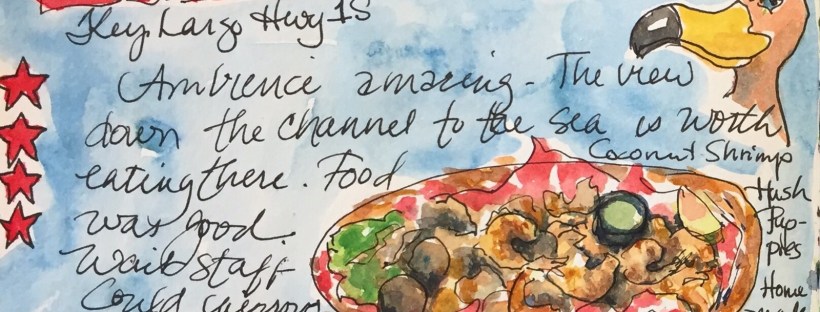 Key Largo Hwy 1S
Ambience amazing - The view
down the channel to the sea is worth
eating there. Food
was good.
Waitstaff
Could
Coconut Shrimp
Hush
Pup-
pies
Home